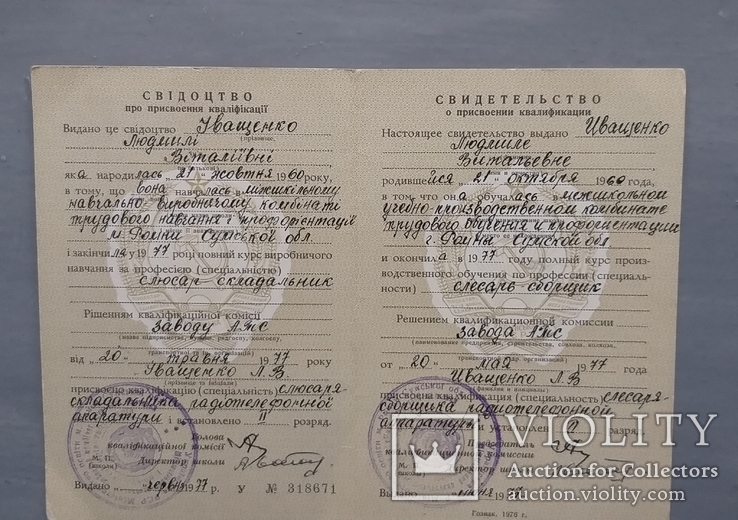 СВІДОЦТВО
про присвоєння кваліфікації
Видано це свідоцтво Іващенко
Людмилі
Віталіївні
яка народилась „21" жовтня 1960 року,
в тому, що вона навчалась в міжшкільному
навчально-виробничому комбінаті
трудового навчання і профорієнтації
м Ромни Сумської обл.
і закінчила у 1977 році повний курс виробничого
навчання за професією (спеціальністю)
слюсар складальник
Рішенням кваліфікаційної комісії
заводу АТС
від „20" травня 1977 року
Іващенко Л.В.
(прізвище та ініціали)
присвоєно кваліфікацію (спеціальність) слюсаря-
складальника радіотелефонної
апаратури і встановлено II розряд.
Голова
кваліфікаційної комісії
М. П.
(школи)
Директор школи
Видано „ " червня 1977 р. У № 318671
СВИДЕТЕЛЬСТВО
о присвоении квалификации
Настоящее свидетельство выдано Иващенко
Людмиле
Витальевне
родившейся 21 октября 1960 года,
в том, что она обучалась в межшкольном
учебно-производственном комбинате
трудового обучения и профориентации
г. Ромны Сумской обл
и окончила в 1977 году полный курс произ-
водственного обучения по профессии (специаль-
ности) слесарь сборщик
Решением квалификационной комиссии
завода АТС
(наименование предприятия, строительства, совхоза, колхоза,
от „20" мая 1977 года
Иващенко Л.В
(фамилия и инициалы)
присвоена квалификация (специальность) слесаря-
сборщика радиотелефонной
аппаратуры и установлен II разряд.
Председатель
квалификационной комиссии
Директор школы
Выдано июня 1977
Гознак. 1976 г.
VIOLITY
Auction for Collectors
auction.violity.com